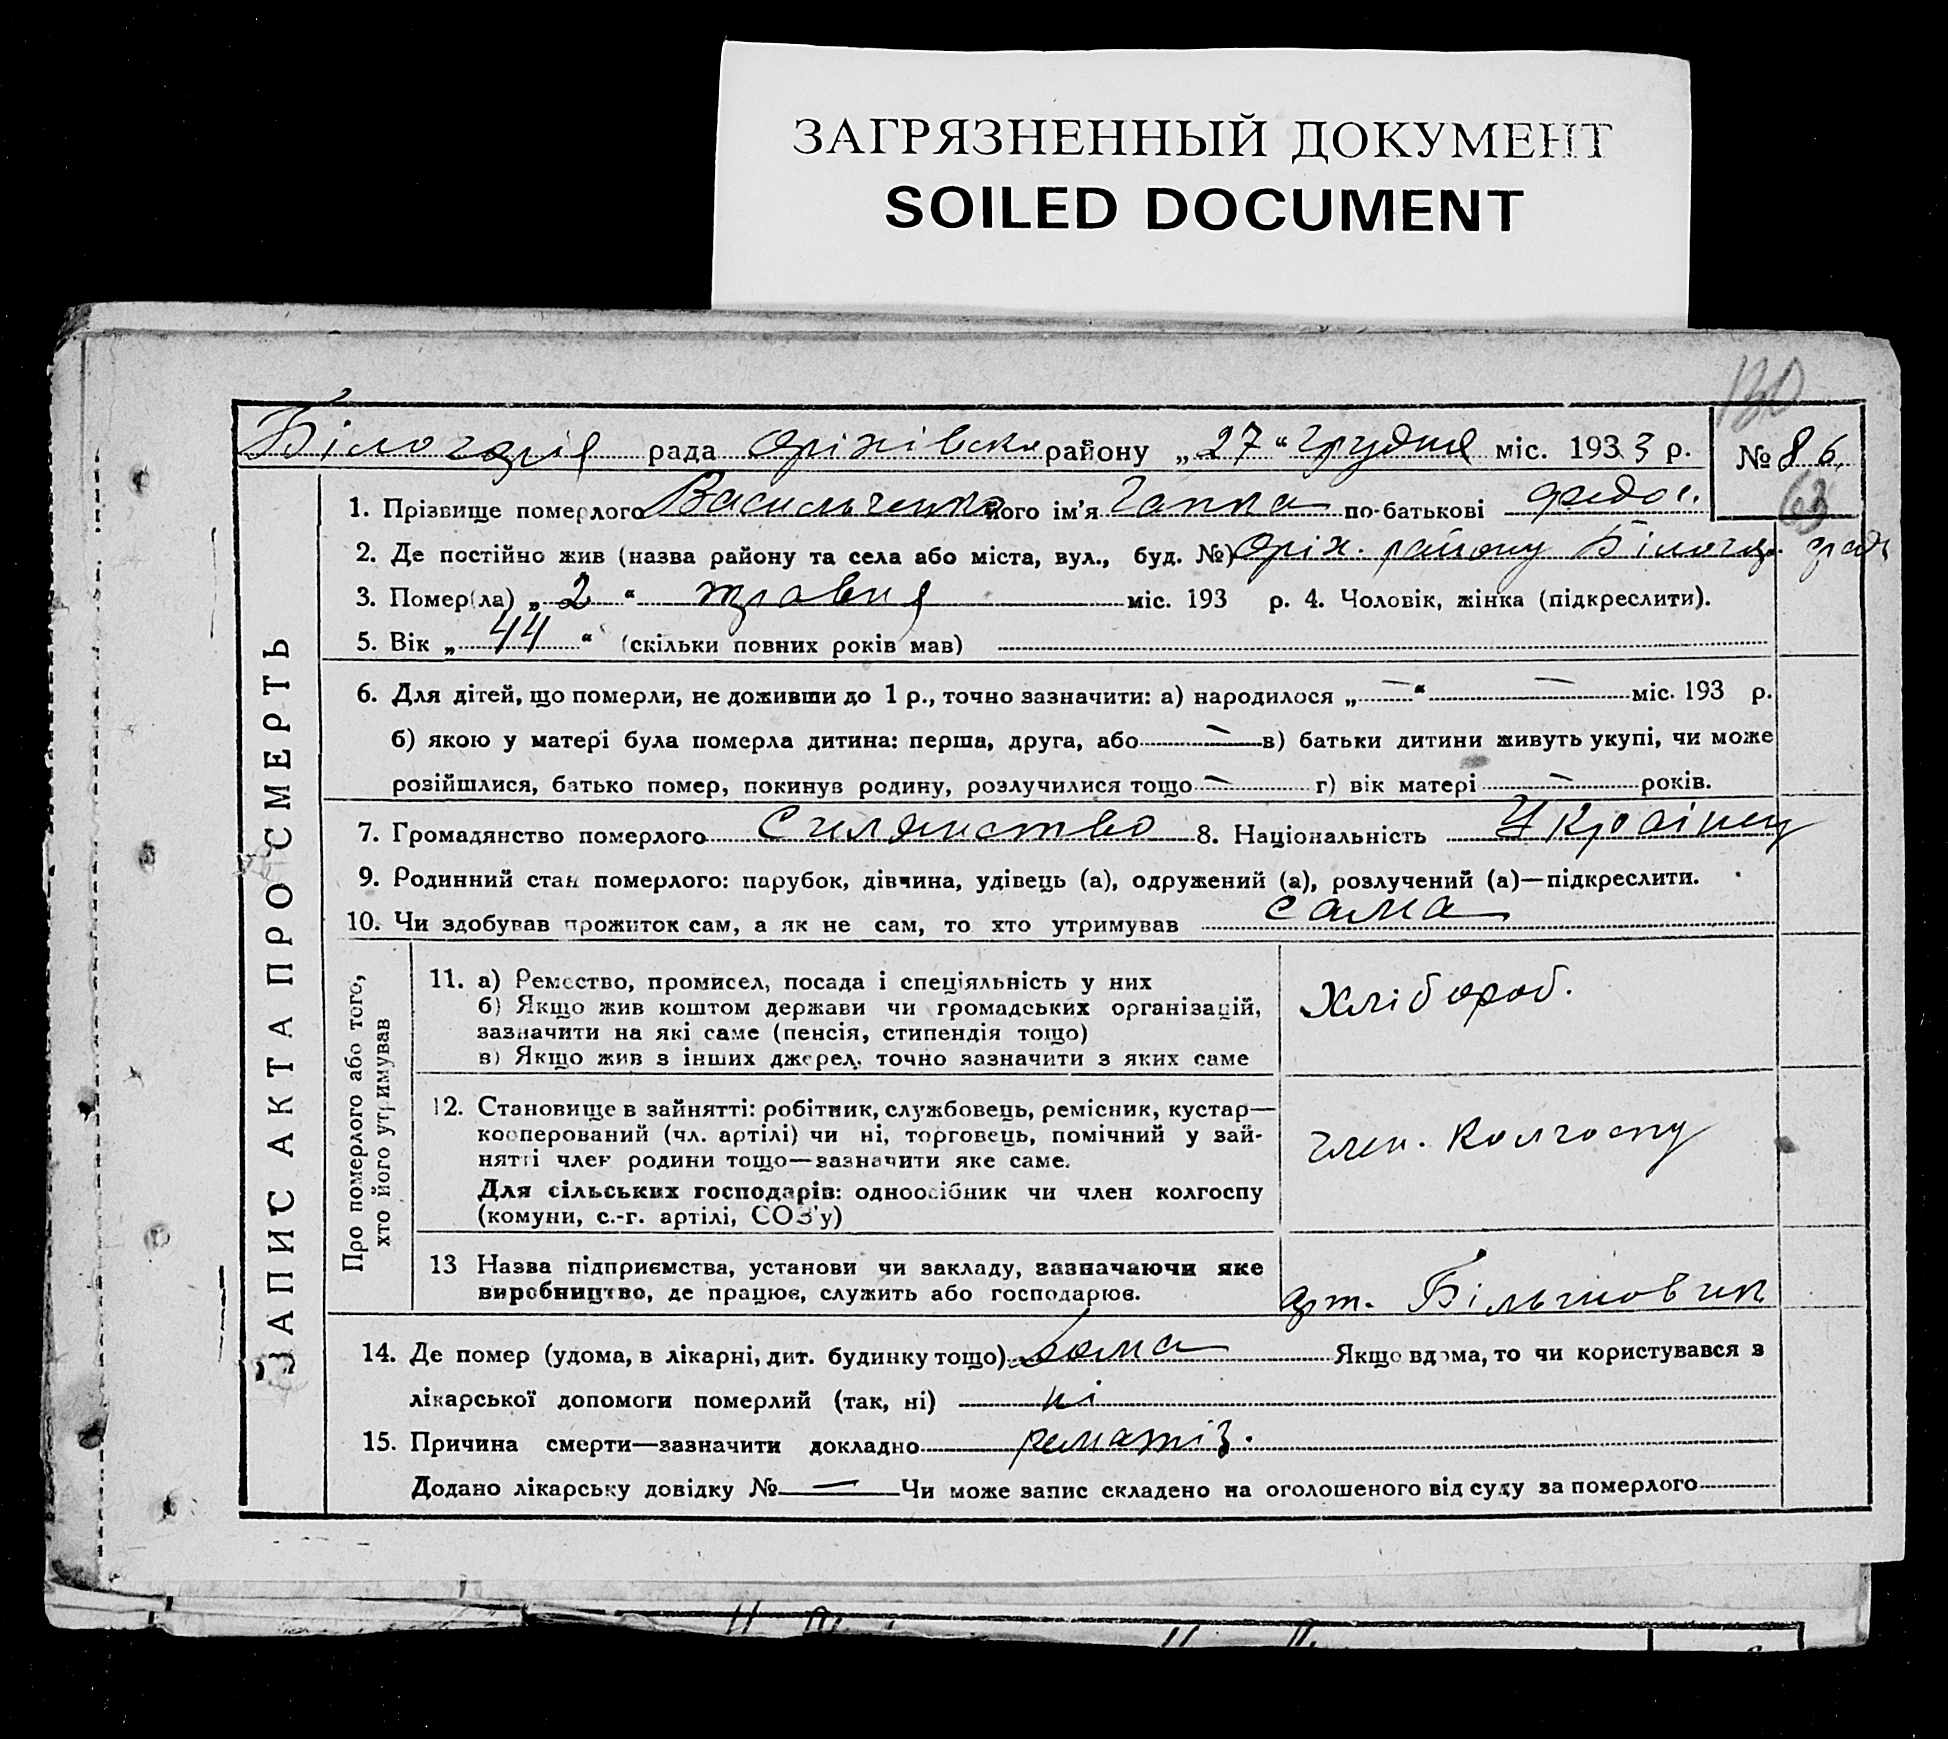 ЗАГРЯЗНЕННЫЙ ДОКУМЕНТ
SOILED DOCUMENT
130
рада Оріхівськ району „27“ Грудня міс. 1933 р. № 86
63
1. Прізвище померлого Васильченко його ім'я Гапка по-батькові Федос.
2. Де постійно жив (назва району та села або міста, вул., буд. №) Оріх. району
3. Помер(ла) „2“ травня міс. 193 р. 4. Чоловік, жінка (підкреслити).
5. Вік „44“ (скільки повних років мав)
6. Для дітей, що померли, не доживши до 1 р., точно зазначити: а) народилося „—“ — міс. 193 р.
б) якою у матері була померла дитина: перша, друга, або — в) батьки дитини живуть укупі, чи може
розійшлися, батько помер, покинув родину, розлучилися тощо — г) вік матері — років.
7. Громадянство померлого Силянство 8. Національність Україниц
9. Родинний стан померлого: парубок, дівчина, удівець (а), одружений (а), розлучений (а)—підкреслити.
10. Чи здобував прожиток сам, а як не сам, то хто утримував сама
ЗАПИС АКТА ПРО СМЕРТЬ
Про померлого або того,
хто його утримував
11. а) Ремество, промисел, посада і спеціяльність у них
б) Якщо жив коштом держави чи громадських організацій,
зазначити на які саме (пенсія, стипендія тощо)
в) Якщо жив з інших джерел, точно зазначити з яких саме
Хлібороб.
12. Становище в зайнятті: робітник, службовець, ремісник, кустар—
кооперований (чл. артілі) чи ні, торговець, помічний у зай-
нятті член родини тощо—зазначити яке саме.
Для сільських господарів: одноосібник чи член колгоспу
(комуни, с.-г. артілі, СОЗ'у)
член. колгоспу
13 Назва підприємства, установи чи закладу, зазначаючи яке
виробництво, де працює, служить або господарює.
арт. Більшовик
14. Де помер (удома, в лікарні, дит. будинку тощо) Дома Якщо вдома, то чи користувався з
лікарської допомоги померлий (так, ні) ні
15. Причина смерти—зазначити докладно рематіз.
Додано лікарську довідку № — Чи може запис складено на оголошеного від суду за померлого